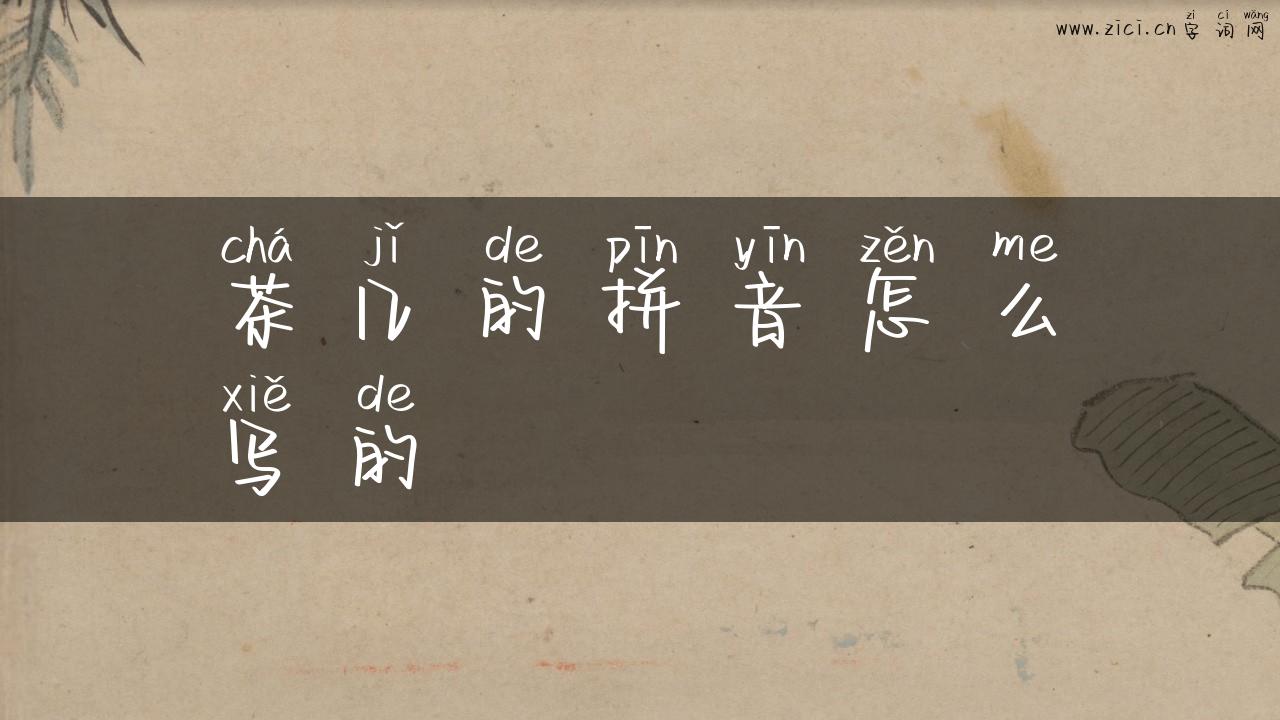 zì cí wǎng
www.zici.cn 字词网
chá jǐ de pīn yīn zěn me
茶几的拼音怎么
xiě de
写的